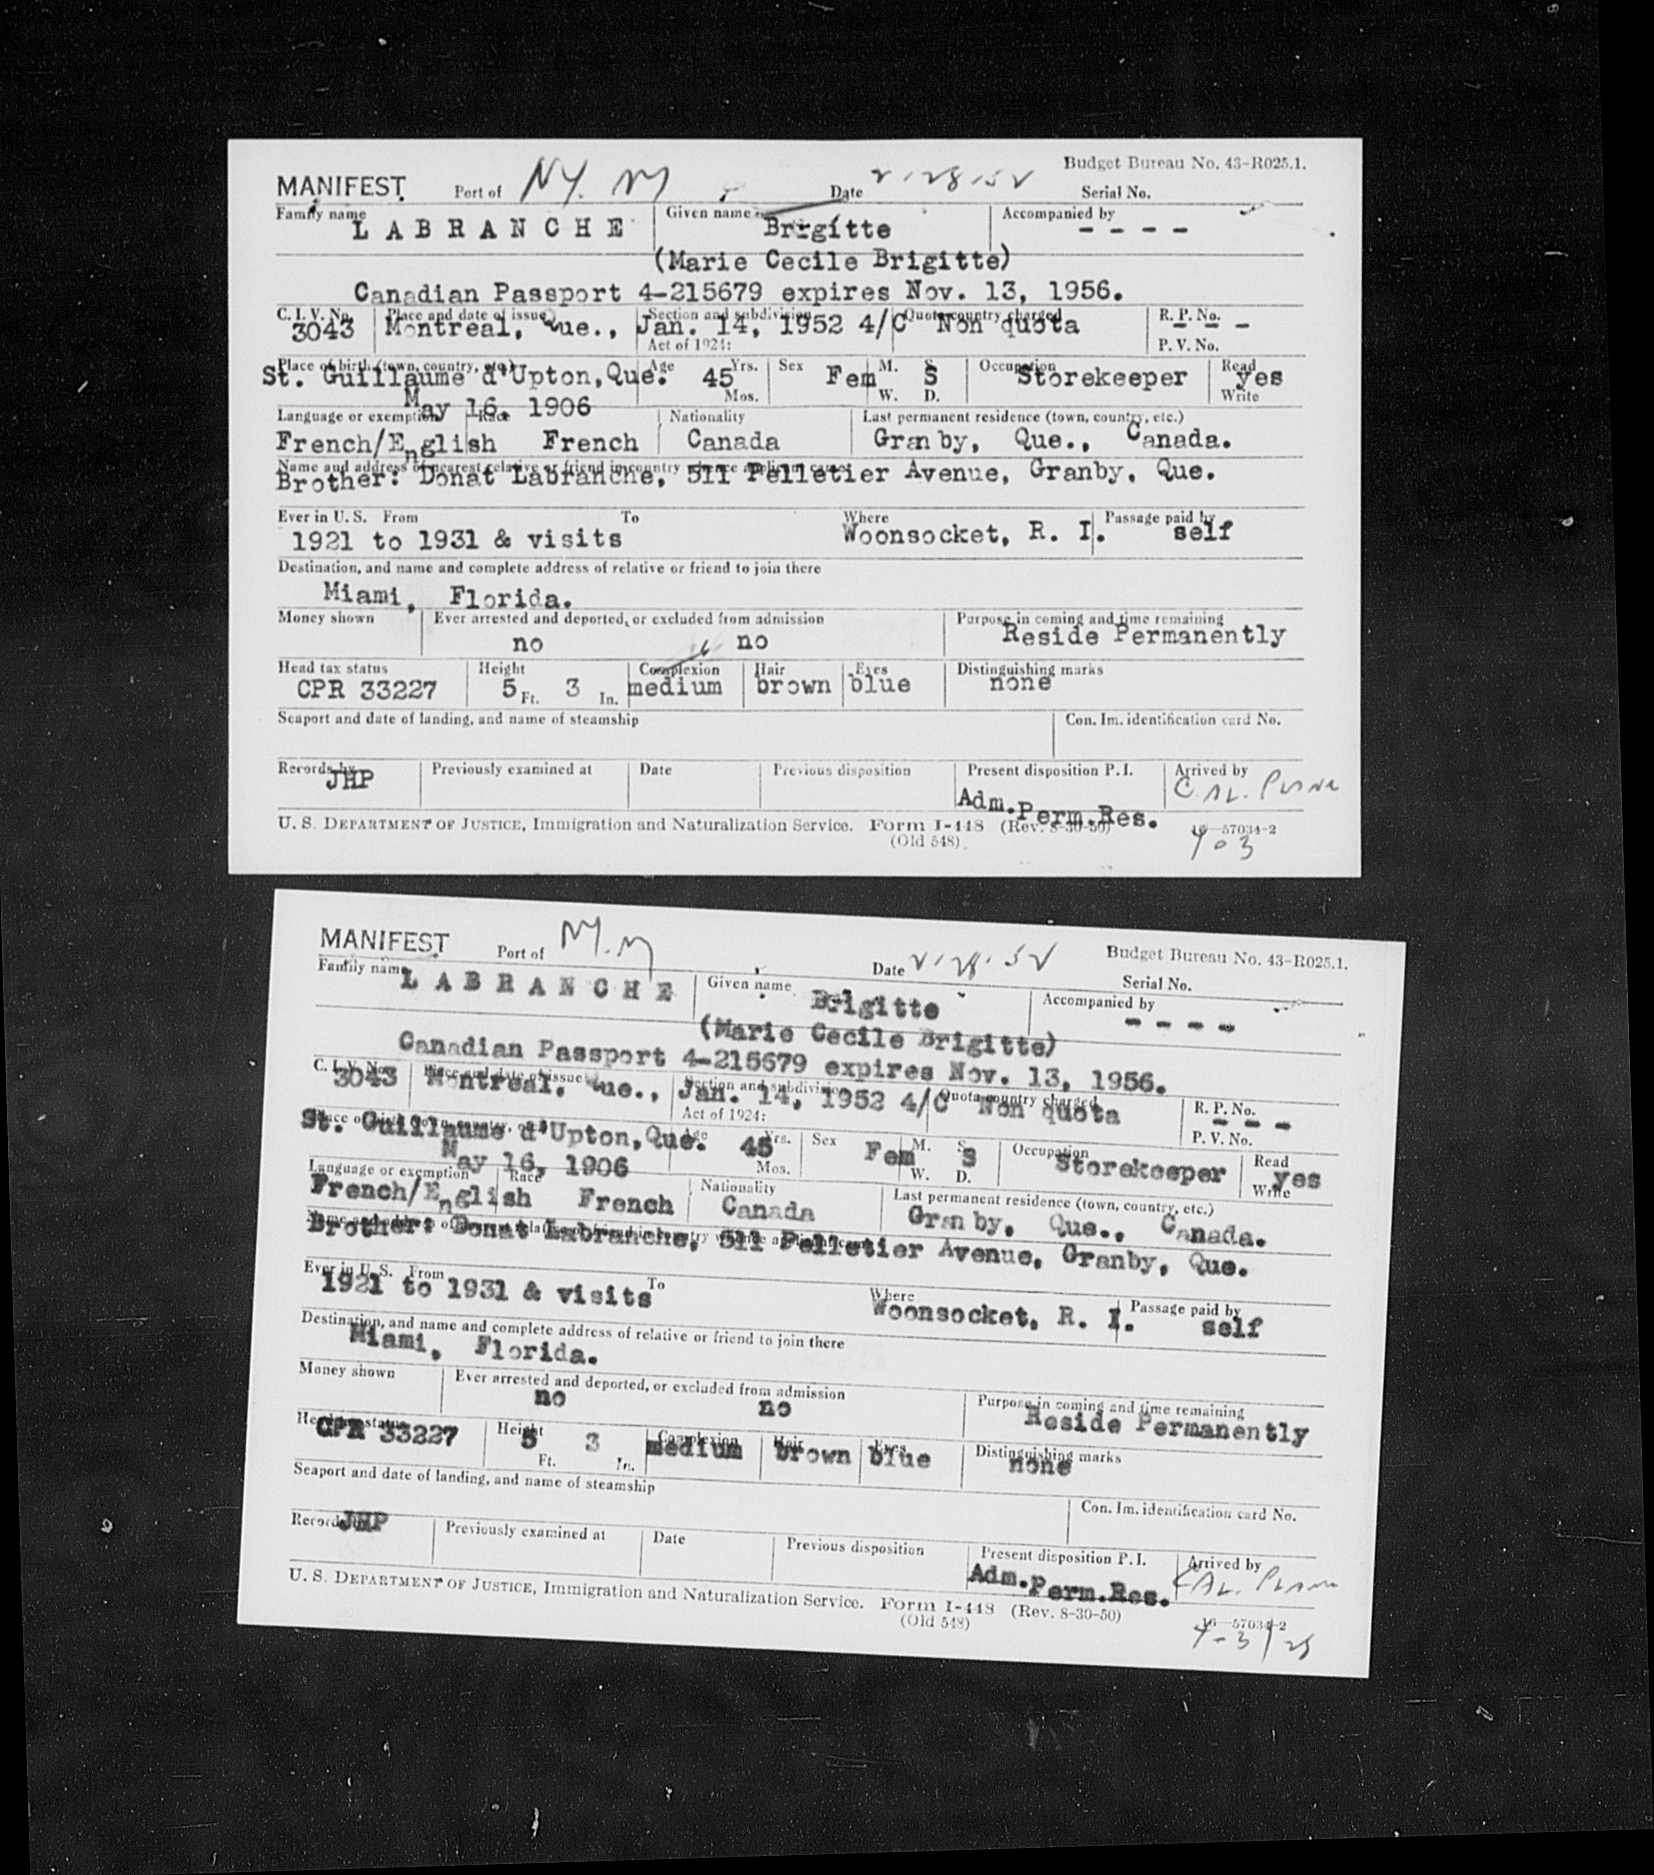 Budget Bureau No. 43-R025.1.
MANIFEST Port of NY. M Date 2.28.52 Serial No.
Family name LABRANCHE Given name Brigitte Accompanied by - - - -
(Marie Cecile Brigitte)
Canadian Passport 4-215679 expires Nov. 13, 1956.
C. I. V. No. Place and date of issue Section and subdivision Quota country charged R. P. No.
3043 Montreal, Que., Jan. 14, 1952 4/C Non quota - - -
Act of 1924: P. V. No.
Place of birth (town, country, etc.) Age Yrs. Sex M. S Occupation Read
St. Guillaume d'Upton, Que. 45 Fem Storekeeper yes
Mos. W. D. Write
May 16, 1906
Language or exemption Race Nationality Last permanent residence (town, country, etc.)
French/English French Canada Granby, Que., Canada.
Name and address of nearest relative or friend in country whence applicant came
Brother: Donat Labranche, 511 Pelletier Avenue, Granby, Que.
Ever in U. S. From To Where Passage paid by
1921 to 1931 & visits Woonsocket, R. I. self
Destination, and name and complete address of relative or friend to join there
Miami, Florida.
Money shown Ever arrested and deported, or excluded from admission Purpose in coming and time remaining
no no Reside Permanently
Head tax status Height Complexion Hair Eyes Distinguishing marks
CPR 33227 5 Ft. 3 In. medium brown blue none
Seaport and date of landing, and name of steamship Con. Im. identification card No.
Records by Previously examined at Date Previous disposition Present disposition P. I. Arrived by
JHP Adm.Perm.Res. C. AL. Plane
U. S. DEPARTMENT OF JUSTICE, Immigration and Naturalization Service. Form I-448 (Rev. 8-30-50) 16—57034-2
(Old 548)
403
MANIFEST Port of Date 2.28.52 Budget Bureau No. 43-R025.1.
Serial No.
Family name LABRANCHE Given name Brigitte Accompanied by - - - -
(Marie Cecile Brigitte)
Canadian Passport 4-215679 expires Nov. 13, 1956.
C. I. V. No. Place and date of issue Section and subdivision Quota country charged R. P. No.
3043 Montreal, Que., Jan. 14, 1952 4/C Non quota - - -
Act of 1924: P. V. No.
Place of birth (town, country, etc.) Age Yrs. Sex M. S. Occupation Read
St. Guillaume d'Upton, Que. 45 Fem S Storekeeper yes
Mos. W. D. Write
May 16, 1906
Language or exemption Race Nationality Last permanent residence (town, country, etc.)
French/English French Canada Granby, Que., Canada.
Name and address of nearest relative or friend in country whence applicant came
Brother: Donat Labranche, 511 Pelletier Avenue, Granby, Que.
Ever in U. S. From To Where Passage paid by
1921 to 1931 & visits Woonsocket, R. I. self
Destination, and name and complete address of relative or friend to join there
Miami, Florida.
Money shown Ever arrested and deported, or excluded from admission Purpose in coming and time remaining
no no Reside Permanently
Head tax status Height Complexion Hair Eyes Distinguishing marks
CPR 33227 5 Ft. 3 In. medium brown blue none
Seaport and date of landing, and name of steamship Con. Im. identification card No.
Records by Previously examined at Date Previous disposition Present disposition P. I. Arrived by
JHP Adm.Perm.Res. C AL. Plane
U. S. DEPARTMENT OF JUSTICE, Immigration and Naturalization Service. Form I-448 (Rev. 8-30-50) 16—57034-2
(Old 548)